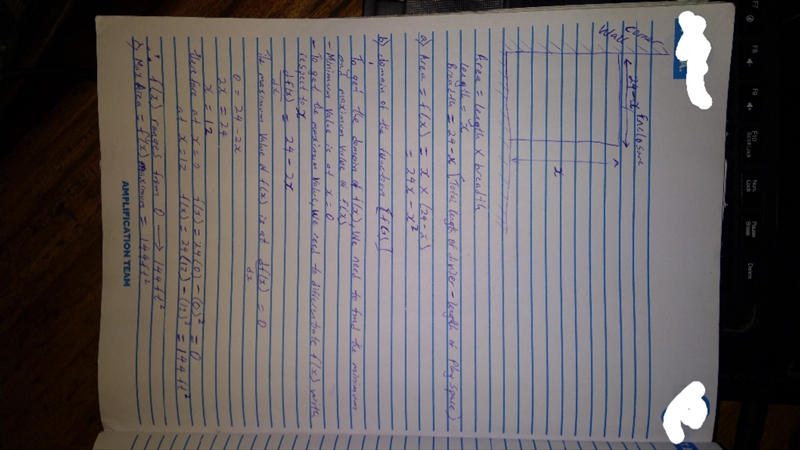 Corner
Wall
24-x
Enclosure
x
Area = length x breadth
length = x
Breadth = 24-x (Total length of divider - length of Play space)
a) Area = f(x) = x x (24-x)
= 24x - x²
b) domain of the function [f(x)]
To get the domain of f(x), we need to find the minimum
and maximum value of f(x)
- Minimum value is at x = 0
- To get the maximum value, we need to differentiate f(x) with
respect to x
df(x)/dx = 24 - 2x
The maximum value of f(x) is at df(x)/dx = 0
0 = 24 - 2x
2x = 24
x = 12
Therefore at x = 0 f(x) = 24(0) - (0)² = 0
at x = 12 f(x) = 24(12) - (12)² = 144 ft²
∴ f(x) ranges from 0 → 144 ft²
Max Area = f(x) maximum = 144 ft²
AMPLIFICATION TEAM
F7
F8
F9
F10
Num
Lock
Pause
Break
Delete